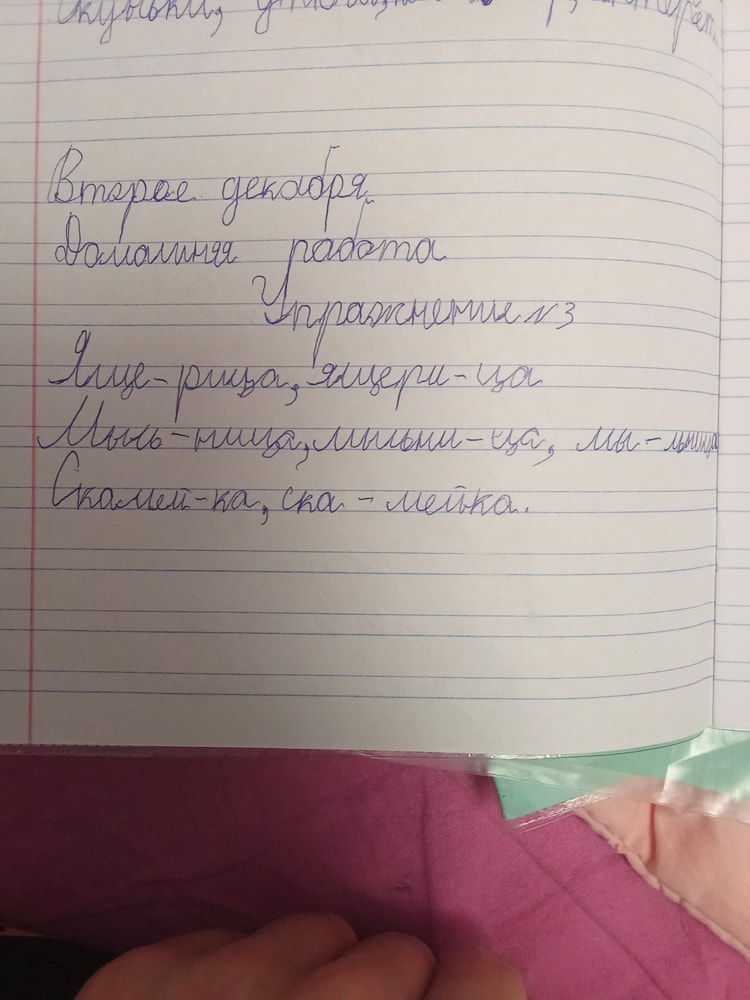 Второе декабря.
Домашняя работа
Упражнение №3
Яще-рица, ящери-ца
Мыль-ница, мыльни-ца, мы-льница
Скамей-ка, ска-мейка.